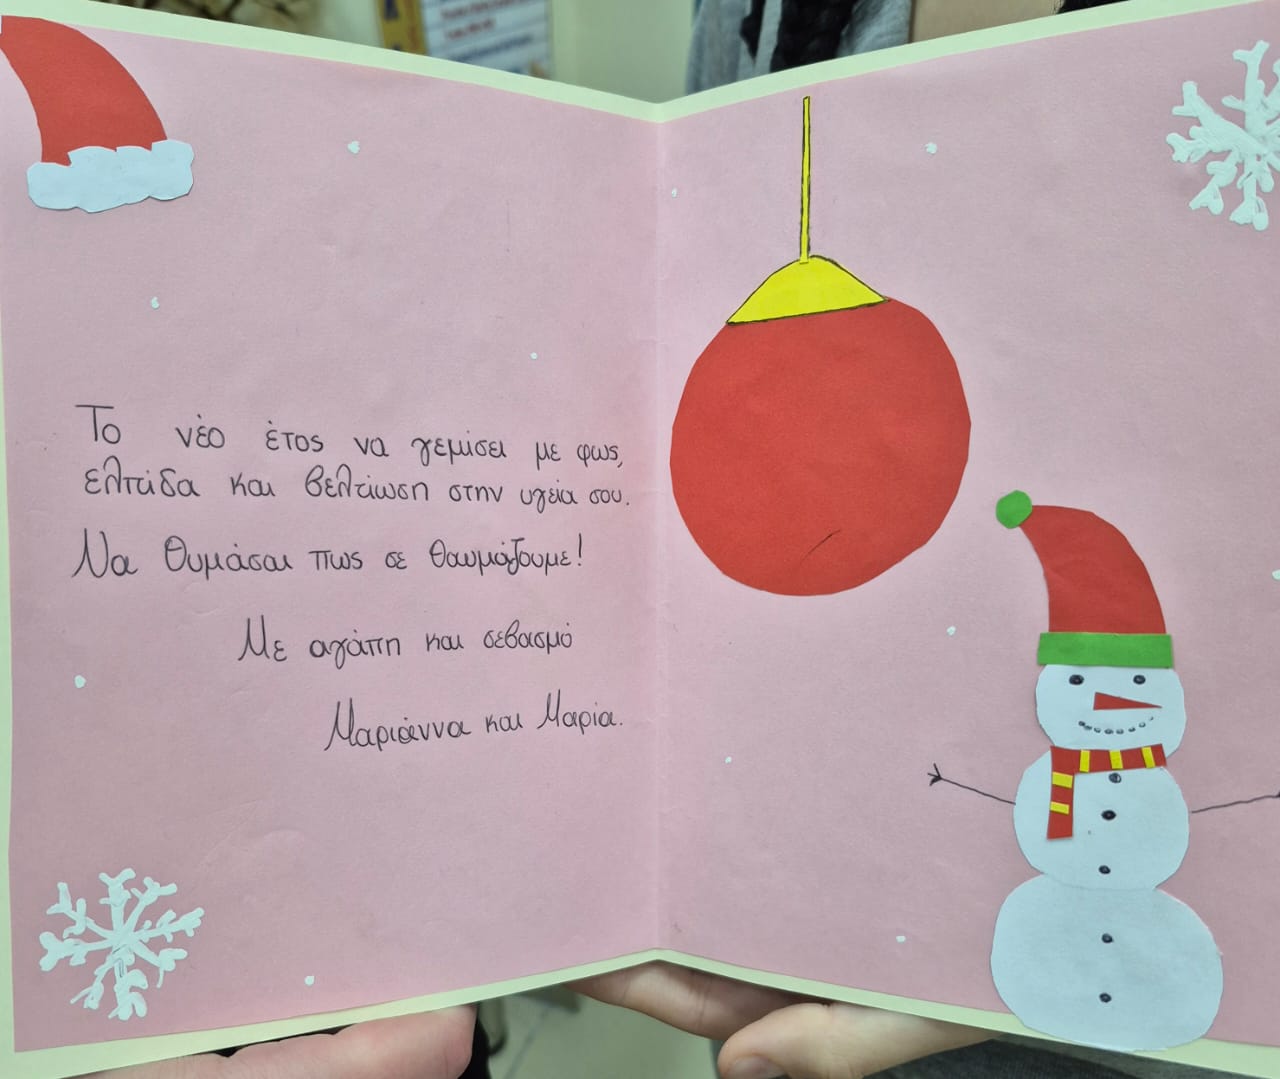 Το νέο έτος να γεμίσει με φως,
ελπίδα και βελτίωση στην υγεία σου.
Να θυμάσαι πως σε θαυμάζουμε!
Με αγάπη και σεβασμό
Μαριάννα και Μαρία.